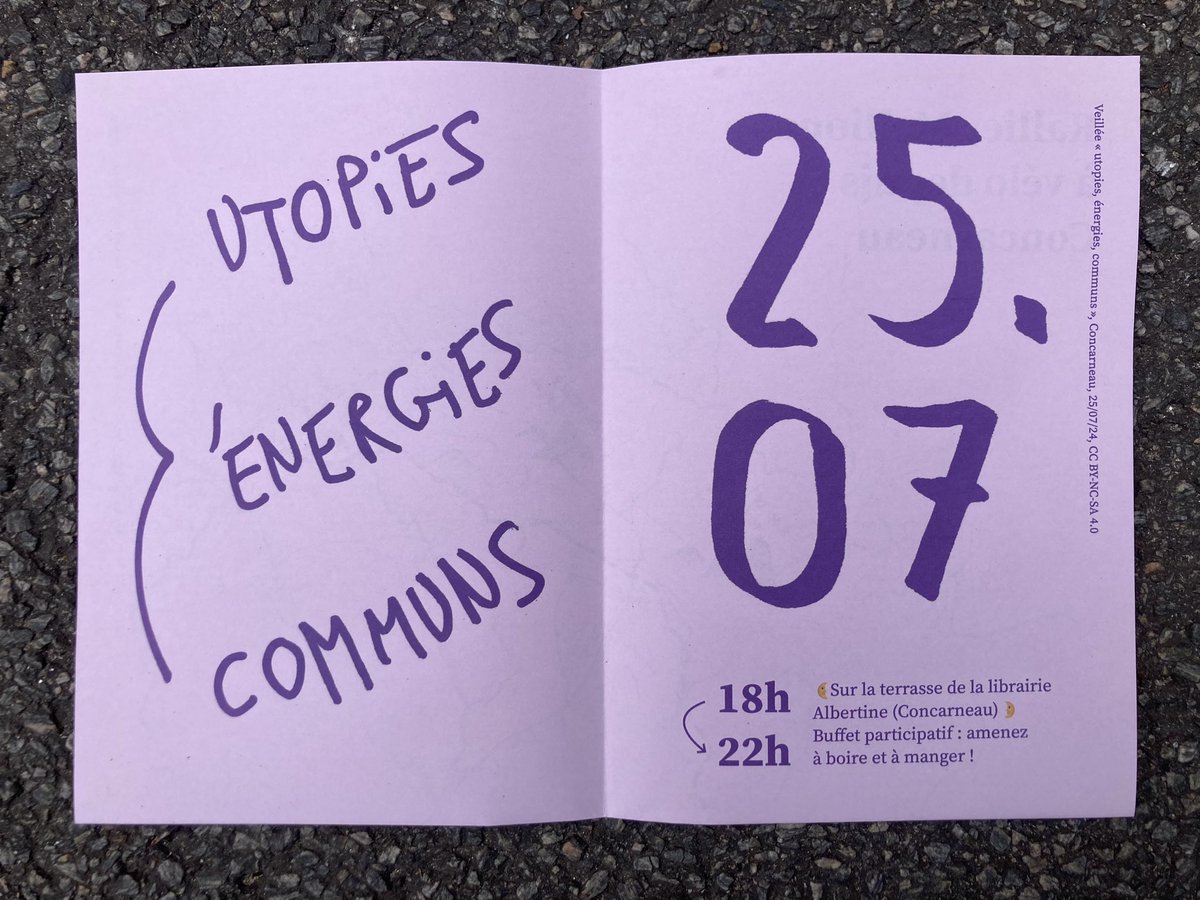 UTOPIES
ÉNERGIES
COMMUNS
25.
07
18h
22h
Sur la terrasse de la librairie
Albertine (Concarneau)
Buffet participatif : amenez
à boire et à manger !
Veillée « utopies, énergies, communs », Concarneau, 25/07/24, CC BY-NC-SA 4.0